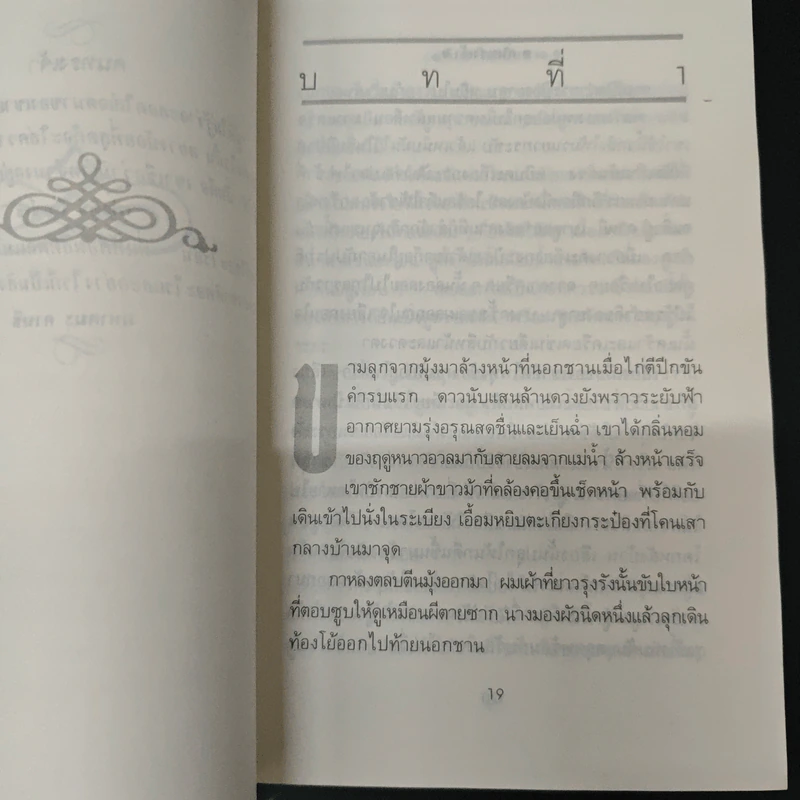 บทที่ 1
ขามลุกจากมุ้งมาล้างหน้าที่นอกชานเมื่อไก่ตีปีกขัน
คำรบแรก ดาวนับแสนล้านดวงยังพราวระยับฟ้า
อากาศยามรุ่งอรุณสดชื่นและเย็นฉ่ำ เขาได้กลิ่นหอม
ของฤดูหนาวอวลมากับสายลมจากแม่น้ำ ล้างหน้าเสร็จ
เขาชักชายผ้าขาวม้าที่คล้องคอขึ้นเช็ดหน้า พร้อมกับ
เดินเข้าไปนั่งในระเบียง เอื้อมหยิบตะเกียงกระป๋องที่โคนเสา
กลางบ้านมาจุด
กาหลงตลบตีนมุ้งออกมา ผมเผ้าที่ยาวรุงรังนั้นขับใบหน้า
ที่ตอบซูบให้ดูเหมือนผีตายซาก นางมองผัวนิดหนึ่งแล้วลุกเดิน
ท้องโย้ออกไปท้ายนอกชาน
19